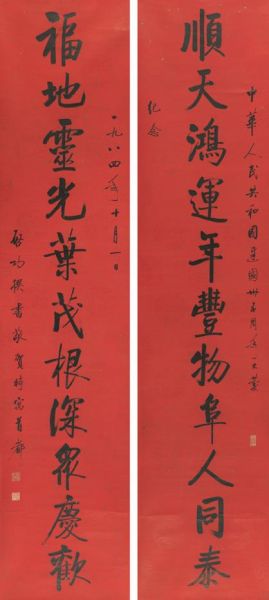 順天鴻運年豐物阜人同泰
中華人民共和国建國卅五周年大慶
紀念
福地靈光葉茂根深眾慶歡
一九八四年十月一日
啟功撰書敬賀時寓首都